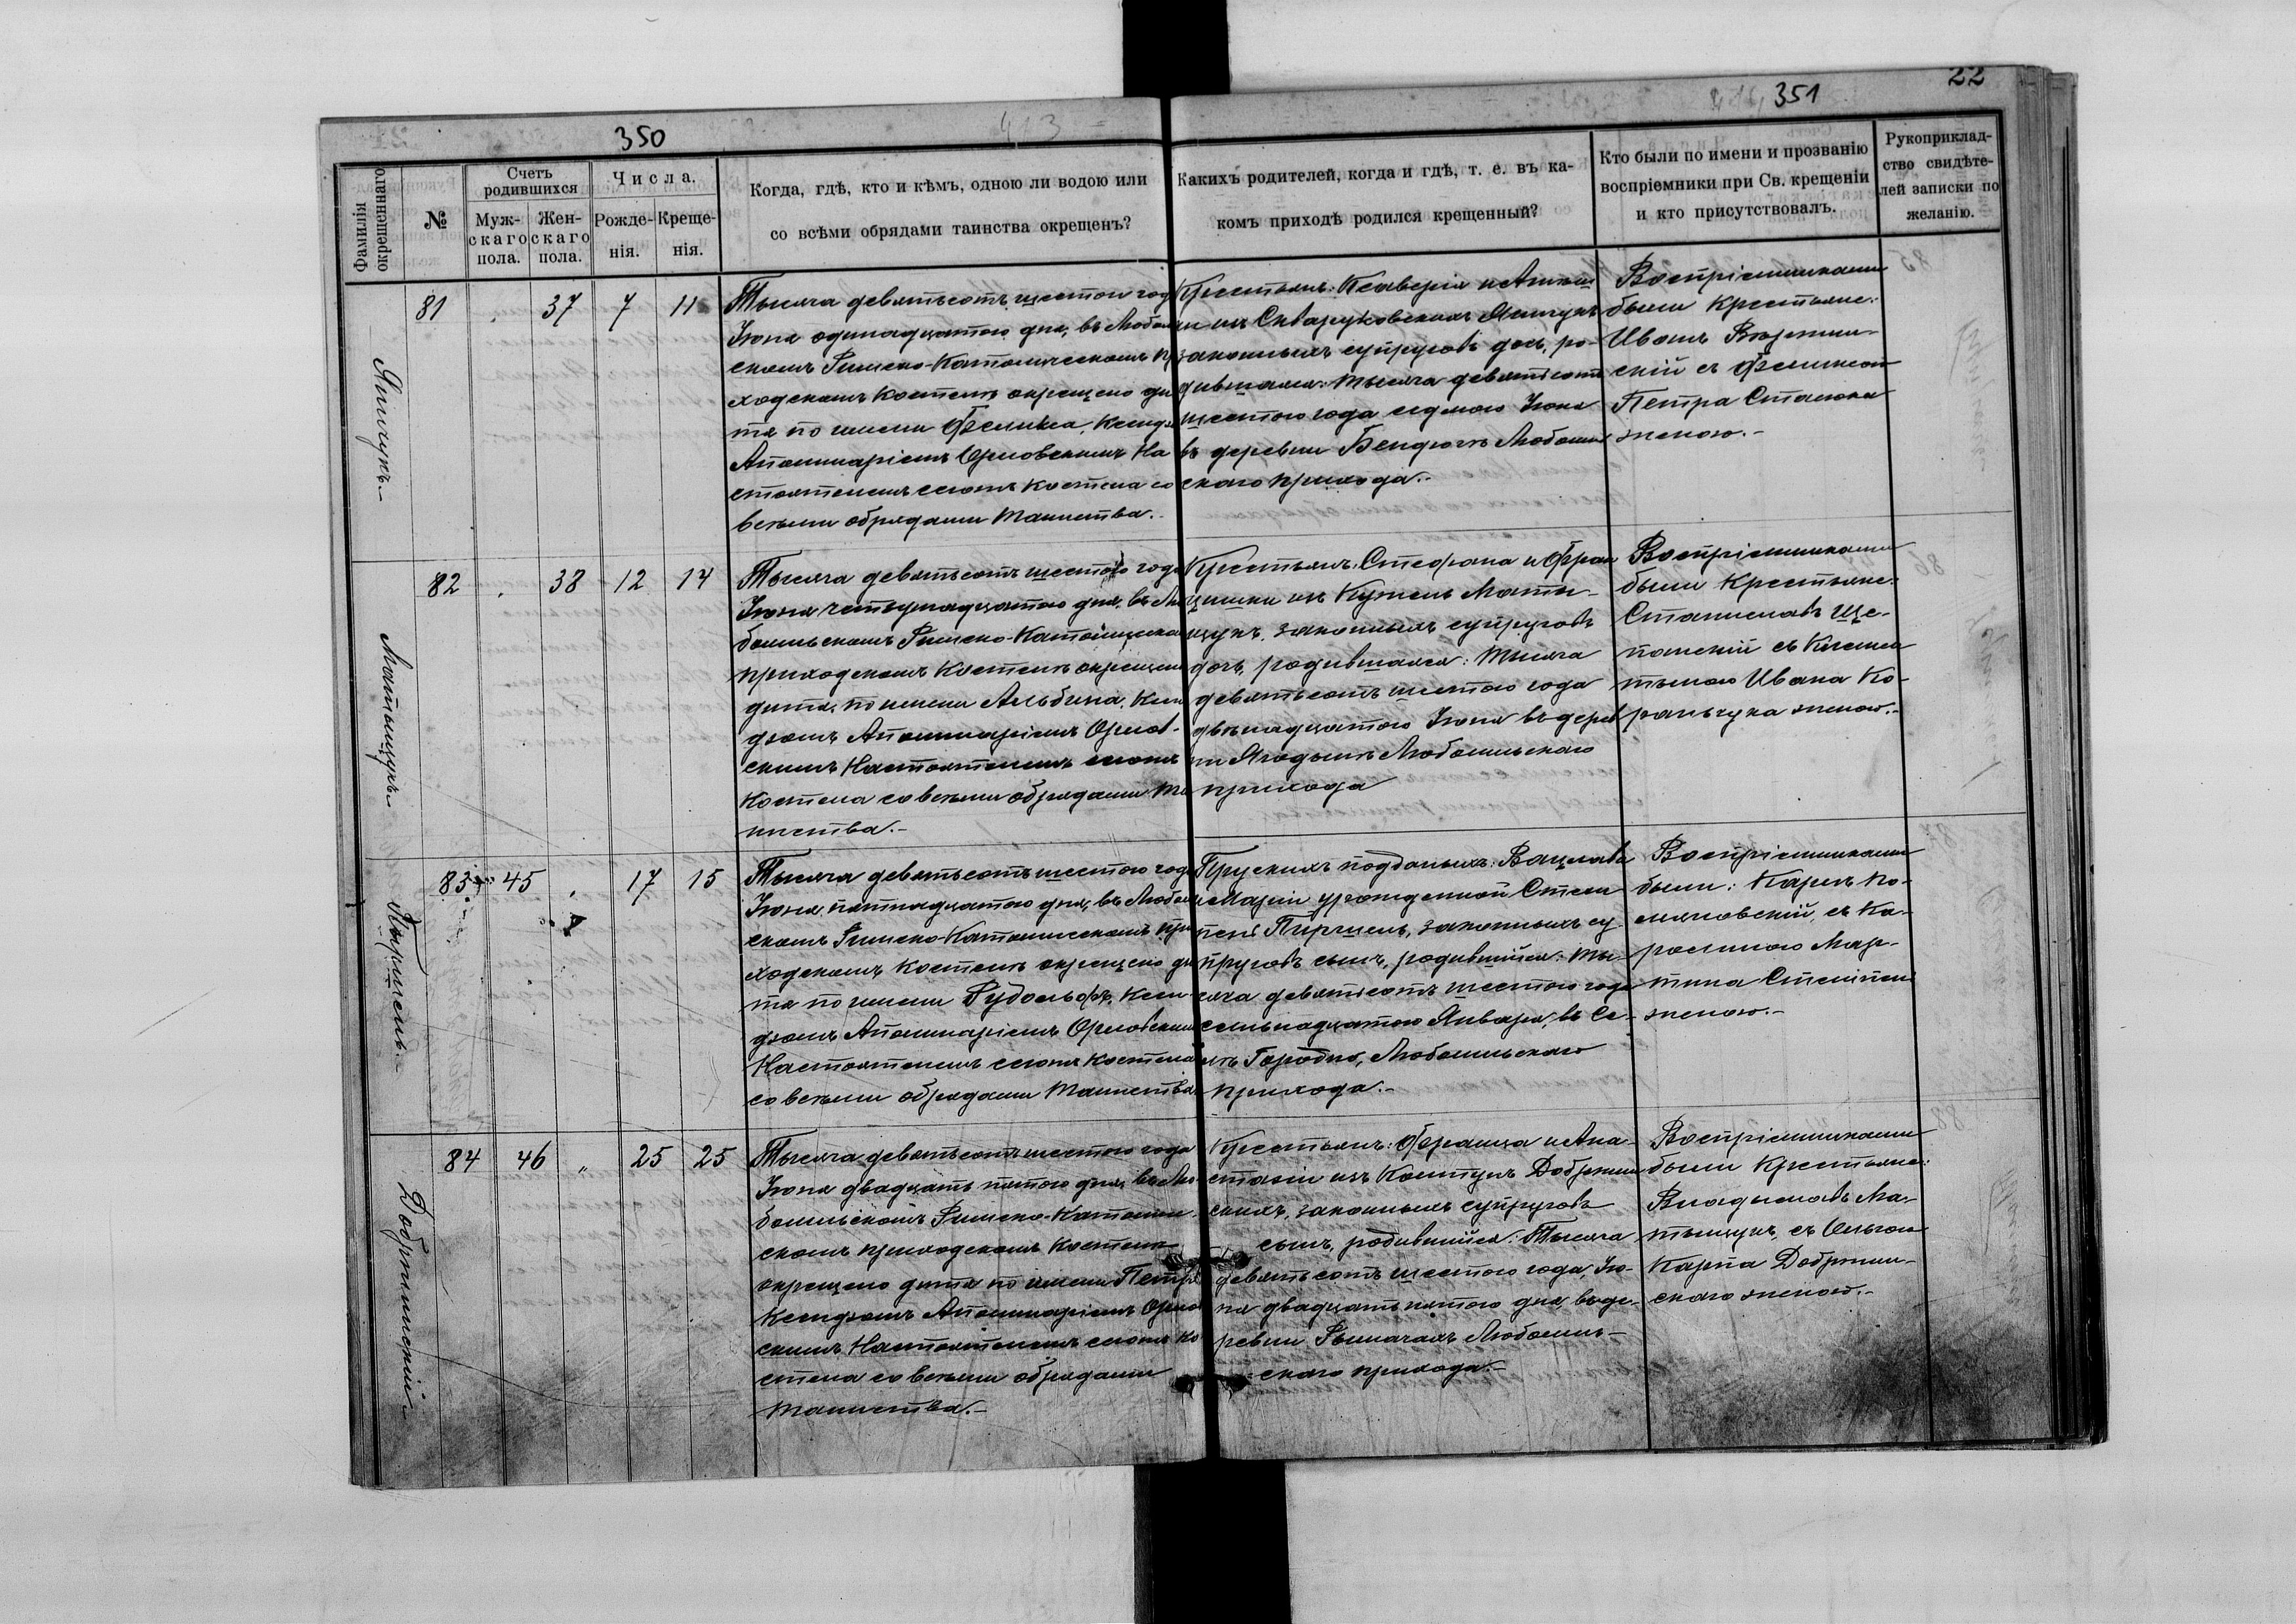 350
351
22
Фамилія окрещеннаго
№
Счетъ родившихся
Муж-скаго пола.
Жен-скаго пола.
Числа.
Рожде-нія.
Креще-нія.
Когда, гдѣ, кто и кѣмъ, одною ли водою или
со всѣми обрядами таинства окрещенъ?
Какихъ родителей, когда и гдѣ, т. е. въ ка-
комъ приходѣ родился крещенный?
Кто были по имени и прозванію
воспріемники при Св. крещеніи
и кто присутствовалъ.
Рукоприклад-
ство свидѣте-
лей записки по
желанію.
Янчукъ.-
81 37 7 11
Тысяча девятьсотъ шестого год
Іюня одинадцатого дня, въ Любом
скомъ Римско-Католическомъ пр
ходскомъ Костелѣ окрещено ди
тя по имени Фелиція, Ксенд
Аполинаріемъ Орловскимъ На
стоятелемъ сегожъ Костела со
всѣми обрядами Таинства.
Крестьянъ: Ксаверія и
изъ Янчукъ
законныхъ супруговъ дочь, ро-
дившаяся: тысяча девятьсотъ
шестого года седьмого Іюня
въ деревни Бендюгѣ Любомль
скаго прихода.-
Воспріемниками
были Крестьяне:
Иванъ
скій съ
Петра Сталюка
женою.-
Матыщукъ.-
82 38 12 14
Тысяча девятьсотъ шестого года
Іюня четырнадцатого дня, въ Лю
бомльскомъ Римско-Католическо
приходскомъ Костелѣ окрещено
дитя, по имени Альбина, Ксен
дзомъ Аполинаріемъ Орлов-
скимъ Настоятелемъ сегожъ
Костела со всѣми обрядами Та
инства.-
Крестьянъ: Стефана и Фран
цишки изъ Маты-
щукъ, законныхъ супруговъ
дочь, родившаяся: тысяча
девятьсотъ шестого года
двѣнадцатого Іюня въ дерев
ни Ягодынѣ Любомльскаго
прихода
Воспріемниками
были Крестьяне:
Станиславъ Ще-
панскій съ Клемен
тыною Ивана Ко-
ральчука женою.-
Пыршель.-
83 45 17 15
Тысяча девятьсотъ шестого год
Іюня, пятнадцатого дня, въ Любом
скомъ Римско-Католическомъ при
ходскомъ Костелѣ окрещено ди
тя по имени Рудольфъ, Ксен
дзомъ Аполинаріемъ Орловским
Настоятелемъ сегожъ Костела
со всѣми обрядами Таинства.
Прускихъ подданыхъ: Вацлава
и Маріи урожденной
Пиршель, законныхъ су
пруговъ сынъ, родившійся: ты-
сяча девятьсотъ шестого года
семьнадцатого Января, въ Се-
лѣ Городно, Любомльскаго
прихода.-
Воспріемниками
были: Карлъ По-
съ Ка-
ролиною Мар-
тина
женою.-
Добржинскій.-
84 46 „ 25 25
Тысяча девятьсотъ шестого года
Іюня двадцать пятого дня, въ Лю-
бомльскомъ Римско-Католич
скомъ приходскомъ Костелѣ
окрещено дитя по имени Петръ
Ксендзомъ Аполинаріемъ Орлов
скимъ Настоятелемъ сегожъ Ко
стела со всѣми обрядами
Таинства.-
Крестьянъ: Франца и Ана-
стазіи изъ Добржин
скихъ, законныхъ супруговъ
сынъ, родившійся: Тысяча
девятьсотъ шестого года, Ію-
ня двадцать пятого дня, въ де-
ревни Рымачахъ Любомль-
скаго прихода.-
Воспріемниками
были Крестьяне:
Владыславъ Ма-
тыщукъ, съ Ольгою
Карпа Добржин-
скаго женою.-